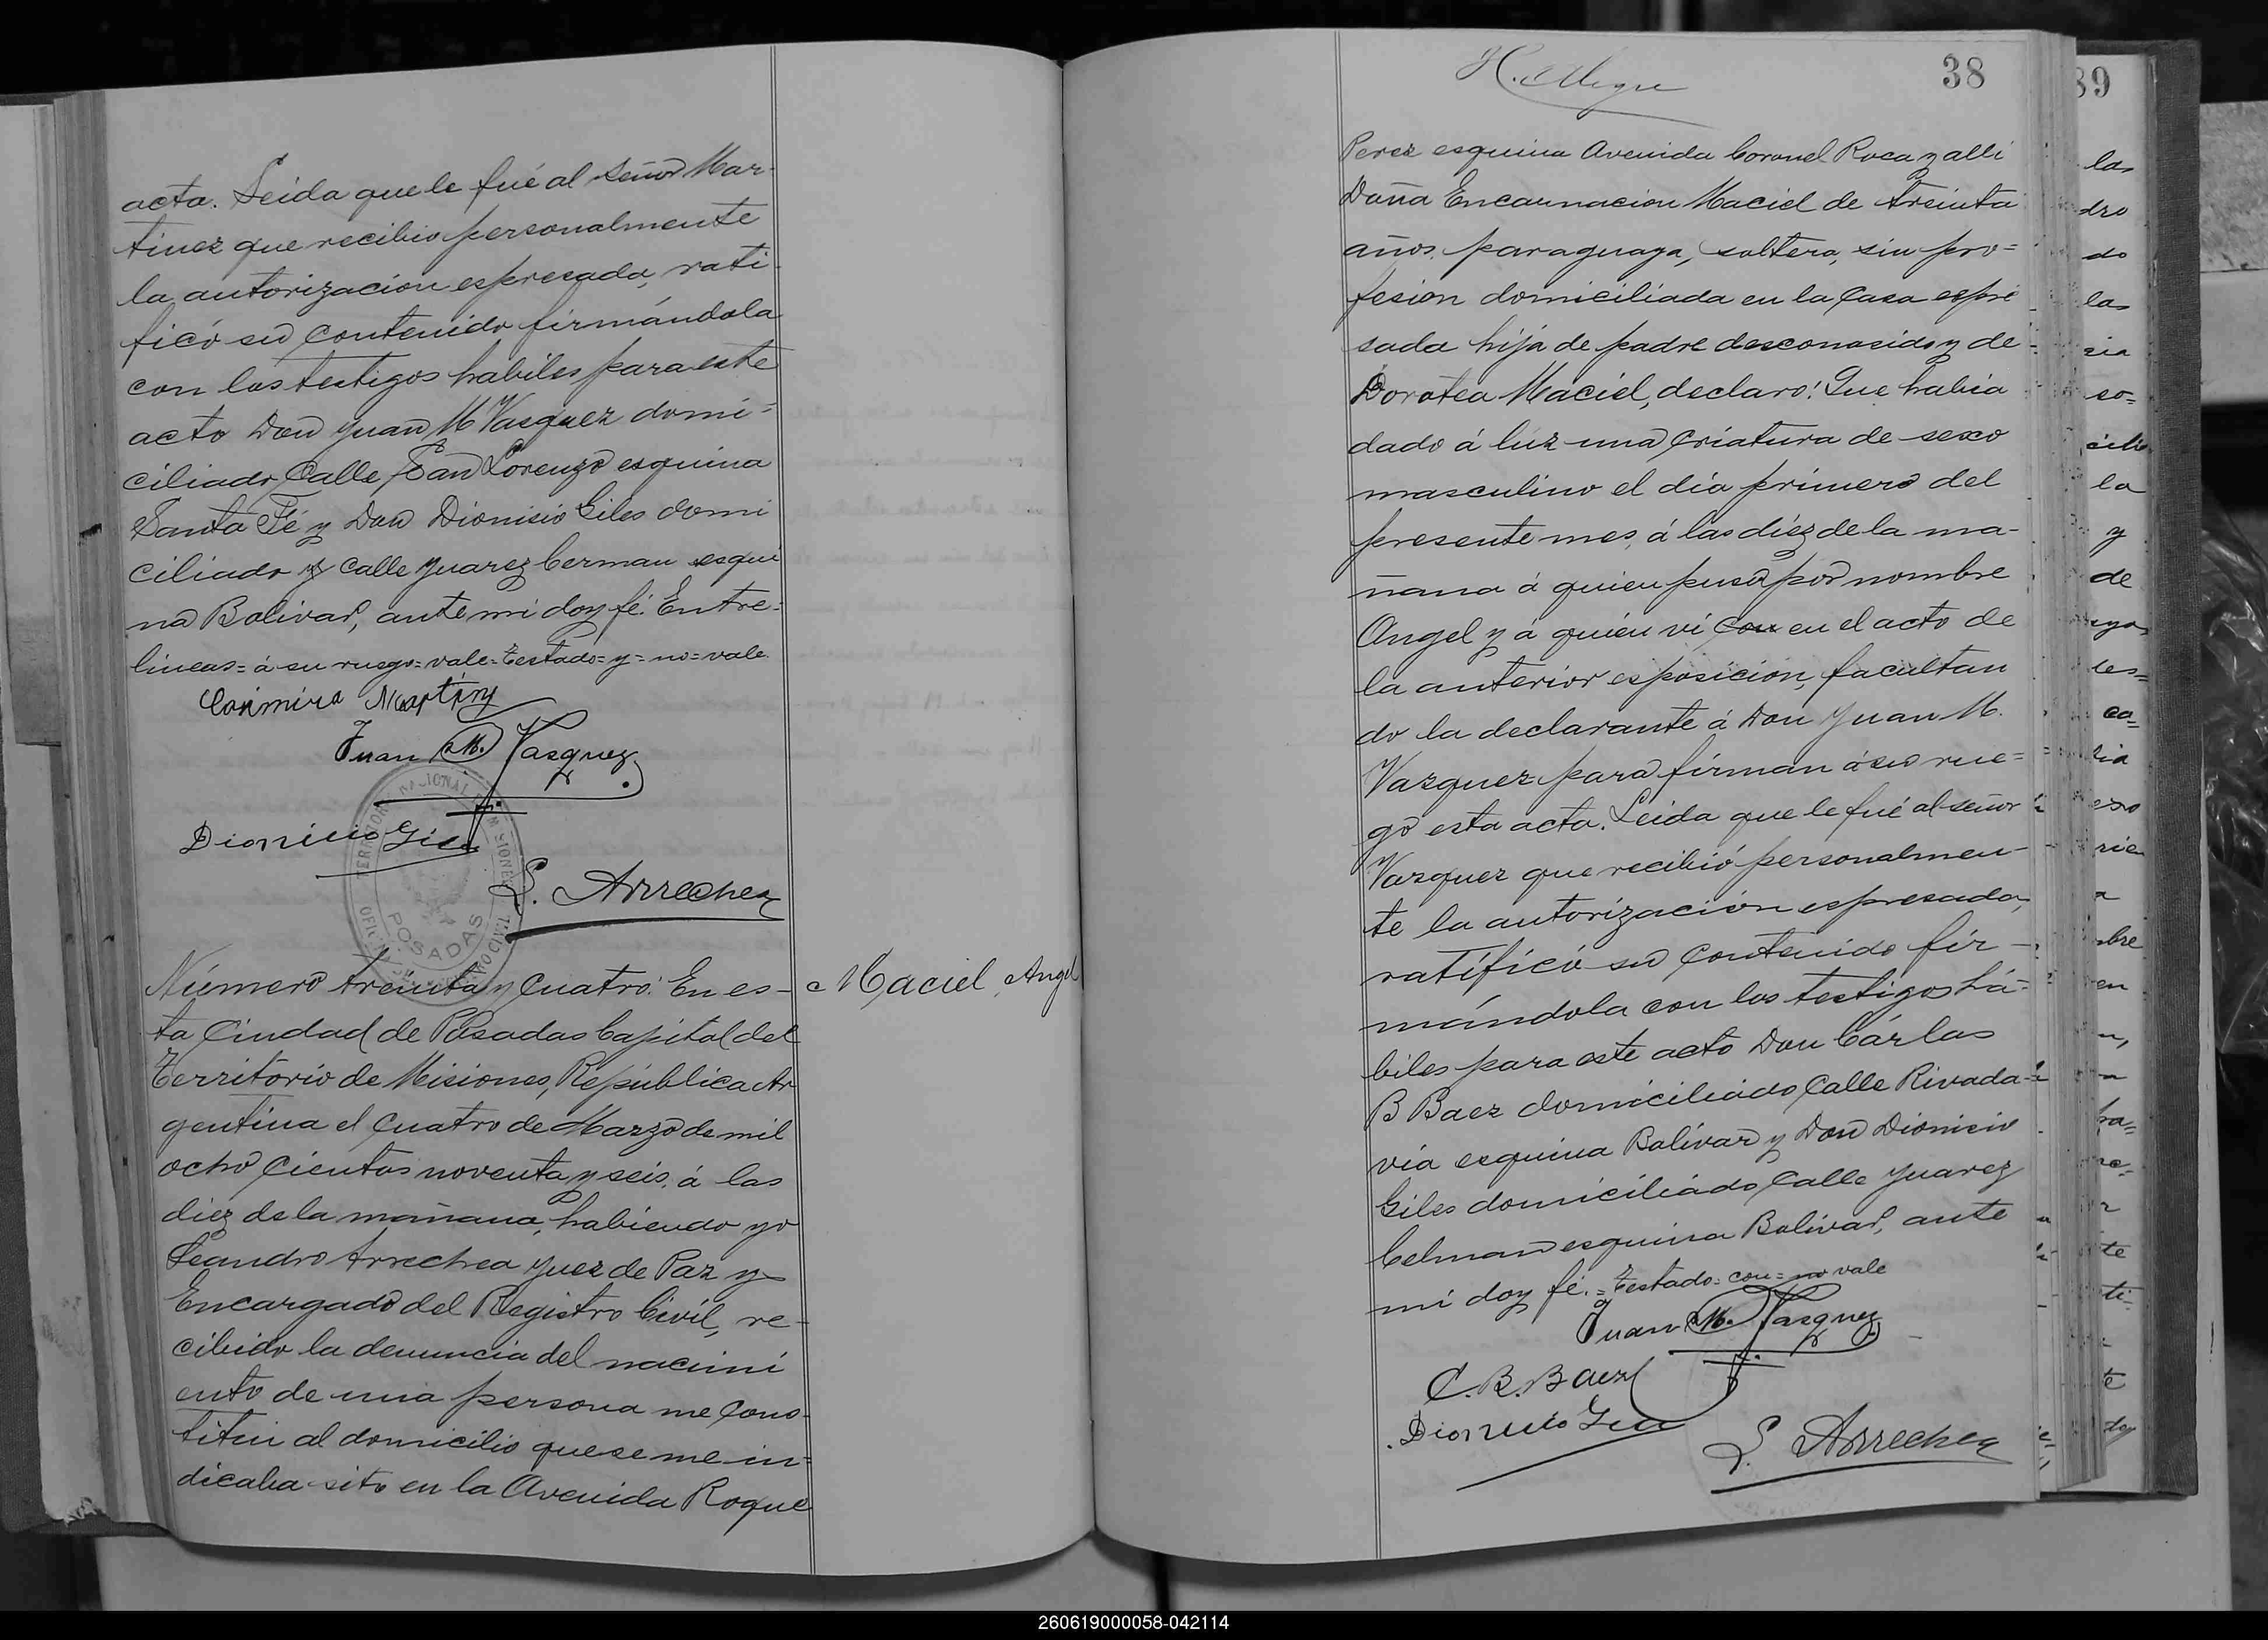 acta. Leida que le fué al señor Mar-
tinez que recibio personalmente
la autorización espresada, rati-
ficó su contenido firmándola
con los testigos habiles para este
acto Don Juan M Vasquez domi=
ciliado Calle San Lorenzo esquina
Santa Fé y Don Dionisio Giles domi
ciliado y calle Juarez Cerman esqui
na Bolivar, ante mi doy fé. Entre-
lineas=á su ruego=vale=Testado=y=no=vale
Casimiro Martinez
Juan M. Vasquez
Dionicio Giles
L. Arrechea
TERRITORIO NACIONAL DE MISIONES
POSADAS
Número treinta y Cuatro: En es-
Maciel, Angel
ta Ciudad de Posadas Capital del
Territorio de Misiones, República Ar
gentina el Cuatro de Marzo de mil
ocho Cientos noventa y seis, á las
diez de la mañana, habiendo yo
Leandro Arrechea Juez de Paz y
Encargado del Registro Civil, re-
cibido la denuncia del nacimi
ento de una persona me Cons-
titui al domicilio que se me in=
dicaba sito en la Avenida Roque
H. Alegre
38
Perez esquina Avenida Coronel Roca y alli
Doña Encarnacion Maciel de treinta
años, paraguaya, soltera, sin pro=
fesion domiciliada en la Casa espre
sada hija de padre desconosido y de
Dorotea Maciel, declaro: Que habia
dado á luz una Criatura de sexo
masculino el dia primero del
presente mes, á las diez de la ma-
ñana á quien puso por nombre
Angel y á quien ví con en el acto de
la anterior esposicion, facultan
do la declarante á Don Juan M.
Vazquez para firman á su rue=
go esta acta. Leida que le fué al señor
Vazquez que recibió personalmen-
te la autorización espresada,
ratificó su Contenido fir-
mándola con los testigos há=
biles para este acto Don Cárlos
B Baez domiciliado Calle Rivada-
via esquina Bolívar y Don Dionicio
Giles domiciliado Calle Juarez
Celman esquina Bolívar, ante
mi doy fé.=Testado=con=no vale
Juan M. Vasquez
C. B. Baez
Dionicio Giles
L. Arrechea
39
las
dro
do
las
so=
la
y
de
te
doy
260619000058-042114